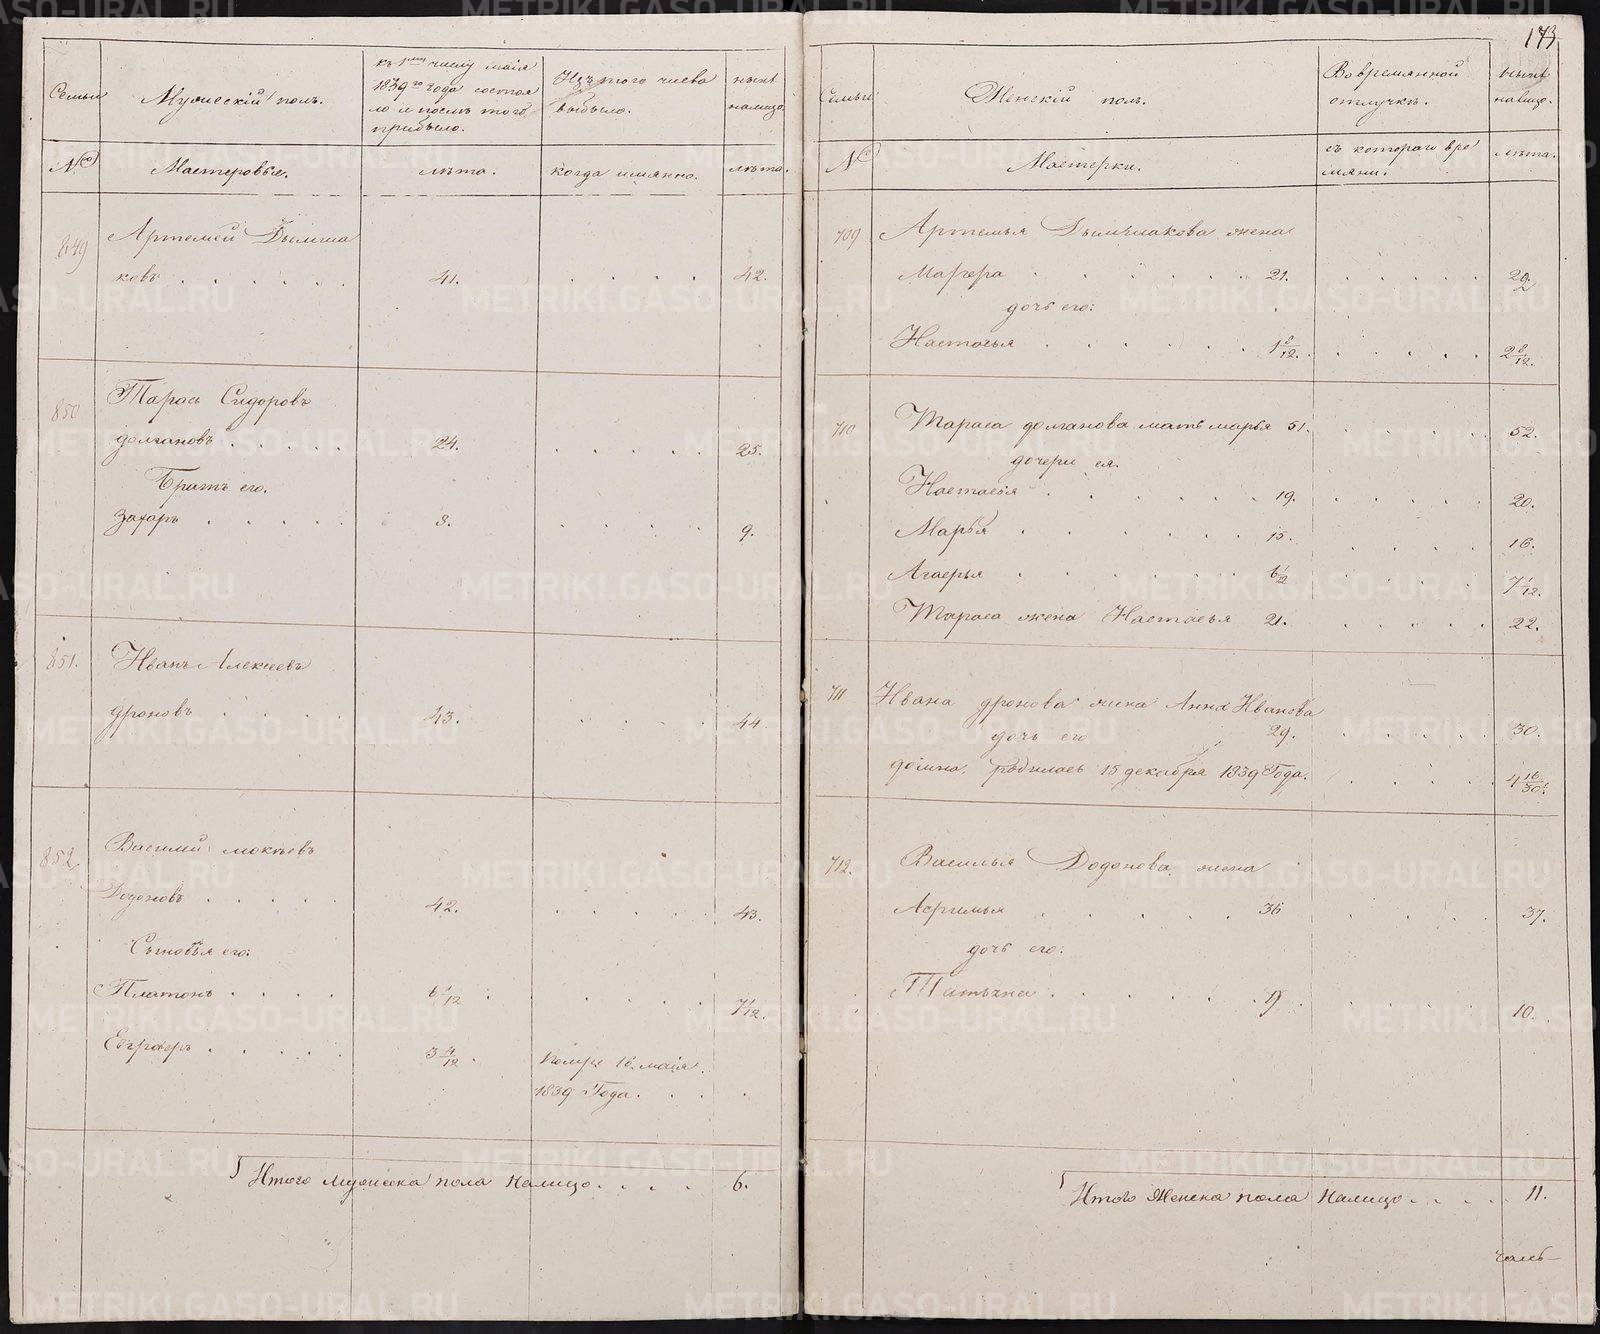 173
Семьи
Мужескій полъ.
къ 1му числу маія
1839го года состоя
ло и послѣ того
прибыло.
Изъ того числа
выбыло.
нынѣ
налицо.
№
Мастеровые.
лѣта.
когда имянно.
лѣта.
849
Артемей Дымша
ковъ . . . . . . 41. . . . . 42.
850
Тарасъ Сидоровъ
долгановъ . . . . . 24. . . . . . 25.
Братъ его.
Захаръ . . . . . 8. . . . . . 9.
851.
Иванъ Алексеевъ
дроновъ . . . . . 43. . . . . . 44.
852.
Василей мокѣевъ
Додоновъ . . . . . 42. . . . . . 43.
Сыновья его:
Платонъ . . . . 6 1/12 . . . . . 7 1/12.
Евграфъ . . . . . 3 4/12 . Помре 16. маія
1839 Года. . . . .
Итого мужеска пола налицо. . . . . 6.
Семьи
Женскій полъ.
Во времянной
отлучкѣ.
нынѣ
налицо.
№
Мастерки.
съ котораго вре
мяни.
лѣта.
709
Артемья Дымшакова жена
. . . . . . 21. . . . . .
дочь его:
Настасья . . . . . . 1 8/12. . . . . . 2 8/12.
710
Тараса долганова мать марья 51. . . . . . 52.
дочери ея.
Настасья . . . . . . 19. . . . . . 20.
Марья . . . . . . 15. . . . . 16.
Агафья . . . . . . 6 1/12 . . . . . 7 1/12.
Тараса жена Настасья 21. . . . . . 22.
711
Ивана дронова жена Анна Иванова
29. . . . . . 30.
дочь его
домна, родилась 15 декабря 1839 Года. . . . . 4 16/30.
712.
Василья Додонова жена
Афимья . . . . . 36 . . . . 37.
дочь его:
Татьяна . . . . . . 9 . . . . . 10.
Итого Женска пола налицо . . . . 11.
METRIKI.GASO-URAL.RU